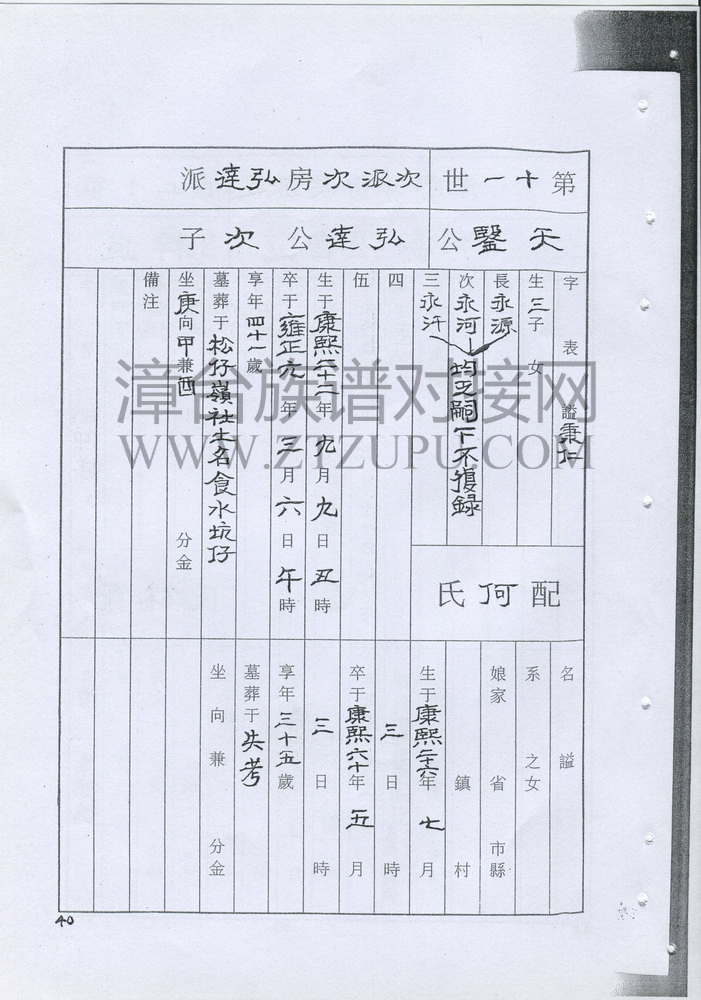 第十一世
次派次房弘達派
天鑒公
弘達公次子
字表 謚秉仁
生三子 女
長永源
次永河
均乏嗣下不復録
三永汗
四
伍
生于康熙二十二年九月九日五時
卒于雍正九年三月六日午時
享年四十一歲
墓葬于松仔嶺社土名食水坑仔
坐庚向甲兼酉 分金
備注
配何氏
名 謚
系 之女
娘家 省 市縣
鎮 村
生于康熙二十六年七月
三日 時
卒于康熙六十年五月
三日 時
享年三十五歲
墓葬于失考
坐 向 兼 分金
40
漳台族谱对接网
WWW.ZTZUPU.COM